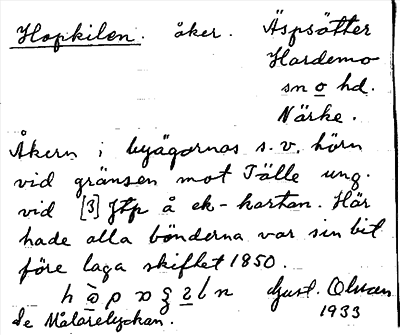 Hopkilen. åker. Äspsätter
Hardemo
sn o hd.
Närke.
Åkern i byägornas s.v. hörn
vid gränsen mot Tälle ung.
vid [3] Jtp å ek-kartan. Här
hade alla bönderna var sin bit
före laga skiftet 1850.
Gust. Olsson
1933
Se Målarelyckan.